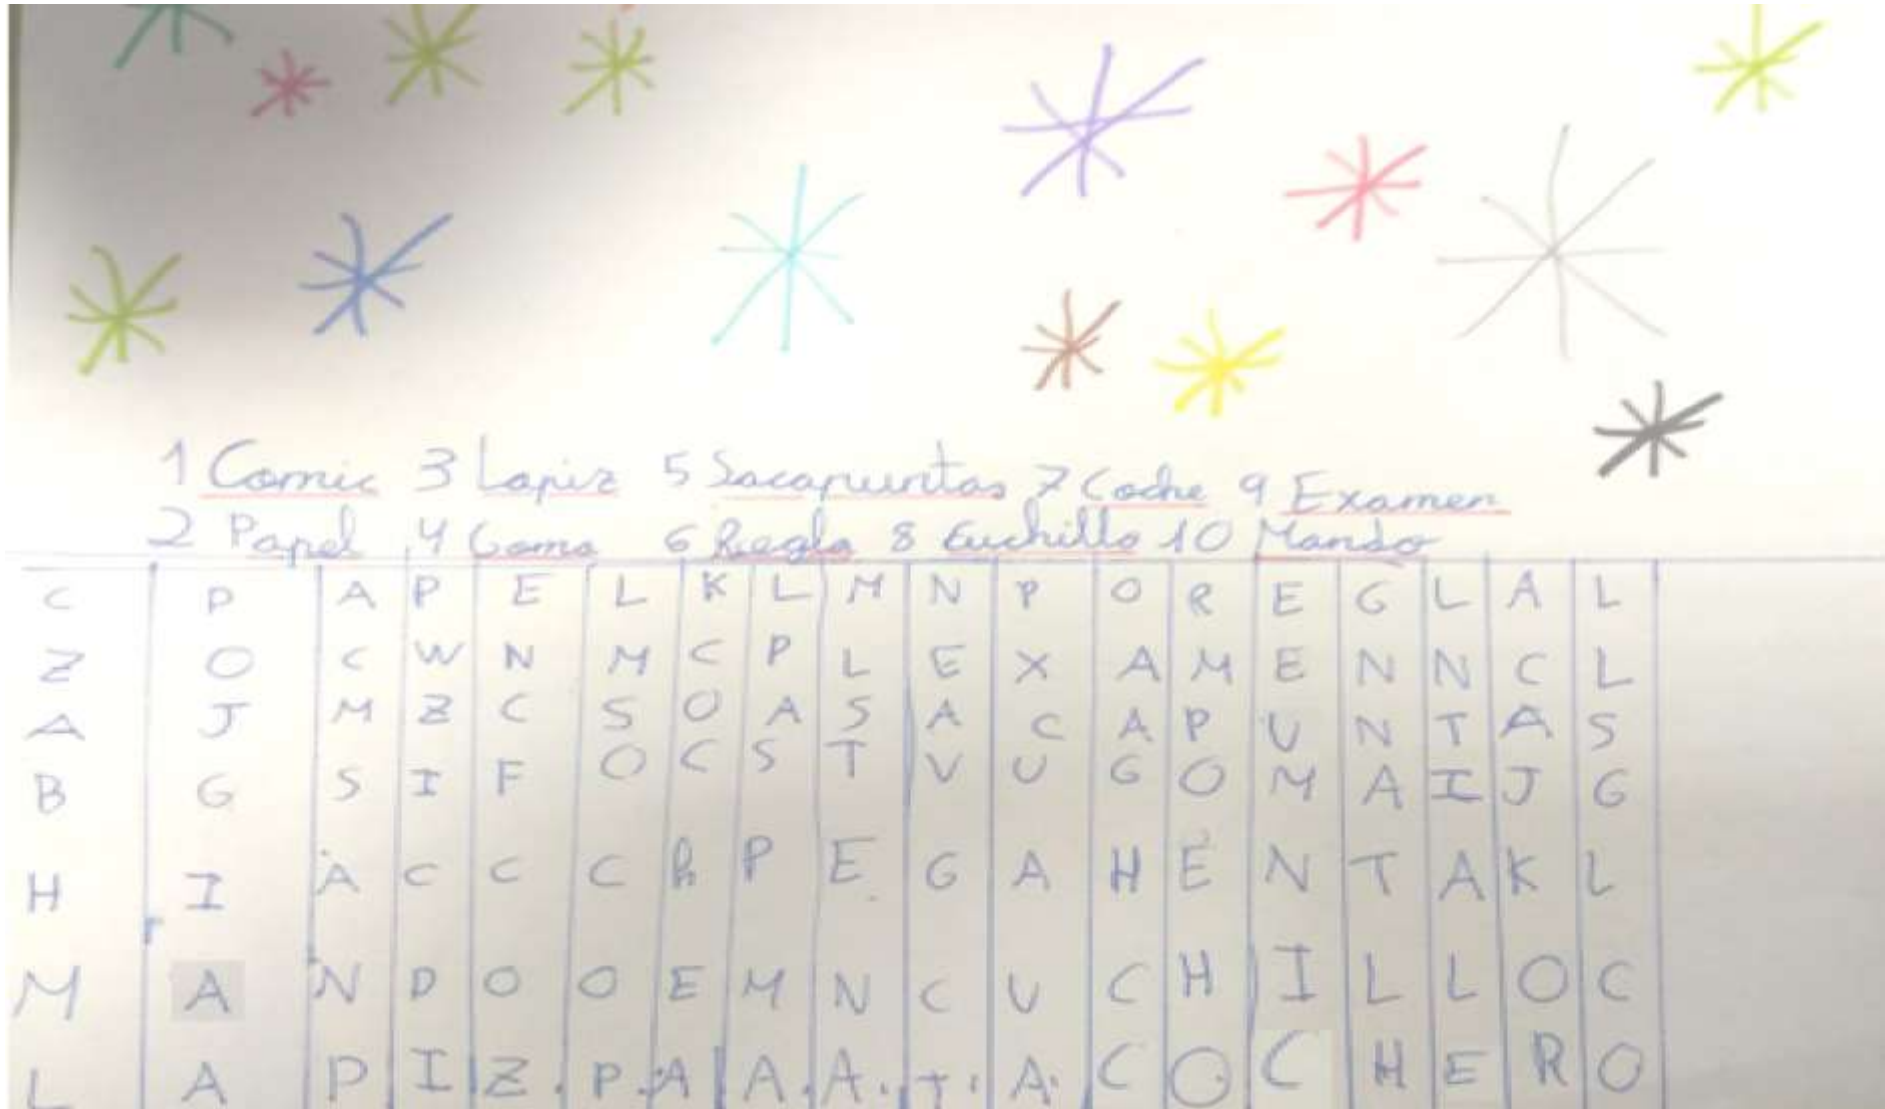 1 Comic 3 Lapiz 5 Sacapuntas 7 Coche 9 Examen
2 Papel 4 Goma 6 Regla 8 Cuchillo 10 Mando
C P A P E L K L M N P O R E G L A L
Z O C W N M C P L E X A M E N N C L
A J M Z C S O A S A C A P U N T A S
B G S I F O C S T V U G O M A I J G
H I A C C C h P E G A H E N T A K L
M A N D O O E M N C U C H I L L O C
L A P I Z P A A A T A C O C H E R O